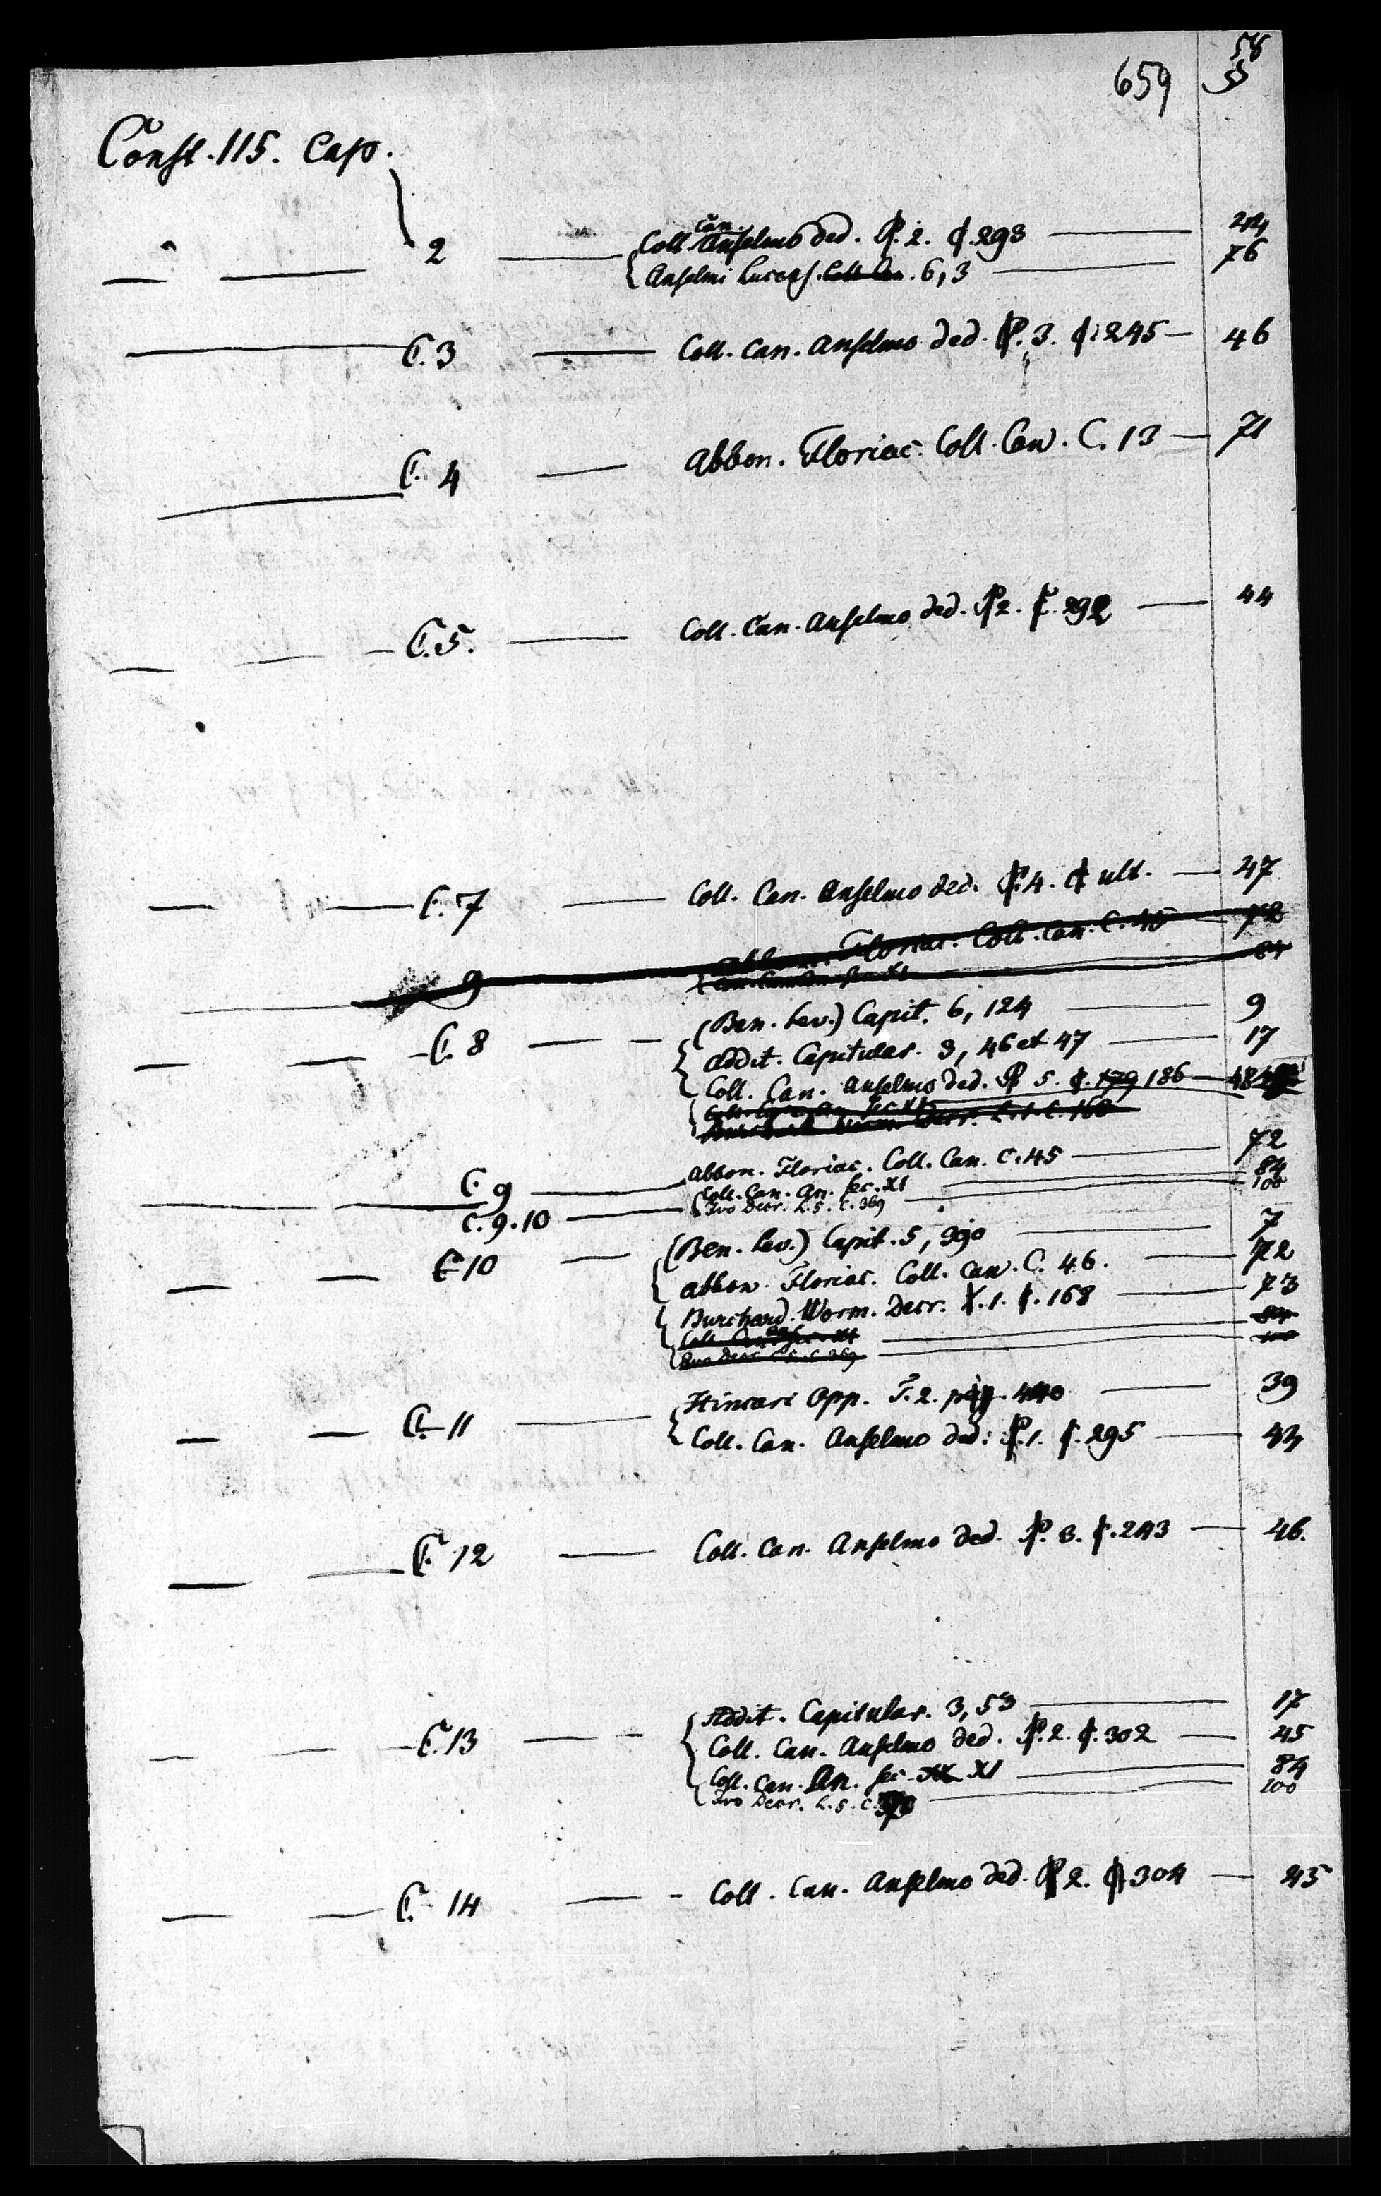 659 58
Const. 115. Cap.
2 Coll. Can. Anselmo ded. P. 2. C. 293 44
Anselmi Lucens. Coll. Can. 6, 3 76
C. 3 Coll. Can. Anselmo ded. P. 3. C. 245 46
C. 4 Abbon. Floriac. Coll. Can. C. 13 71
C. 5. Coll. Can. Anselmo ded. P. 2. C. 292 44
C. 7 Coll. Can. Anselmo ded. P. 4. C. ult. 47
9 Abbon. Floriac. Coll. Can. C. 45 72
84
(Ben. Lev.) Capit. 6, 124 9
C. 8 Addit. Capitular. 3, 46 et 47 17
Coll. Can. Anselmo ded. P. 5. C. 179 186 48
Burchard. Worm. Decr. L. 1. C. 168
C. 9 Abbon. Floriac. Coll. Can. C. 45 72
Coll. Can. An. Sec. XI 84
C. 9. 10 Ivo Decr. L. 5. C. 369 100
(Ben. Lev.) Capit. 5, 390 7
C. 10 Abbon. Floriac. Coll. Can. C. 46. 72
Burchard. Worm. Decr. L. 1. C. 168 73
Coll. Can. An. Sec. XI 84
Ivo Decr. L. 5. C. 369 100
C. 11 Hincmari Opp. T. 2. pag. 440 39
Coll. Can. Anselmo ded. P. 1. C. 295 43
C. 12 Coll. Can. Anselmo ded. P. 3. C. 243 46.
Addit. Capitular. 3, 53 17
C. 13 Coll. Can. Anselmo ded. P. 2. C. 302 45
Coll. Can. An. Sec. XI 84
Ivo Decr. L. 5. C. 100
C. 14 Coll. Can. Anselmo ded. P. 2. C. 304 45